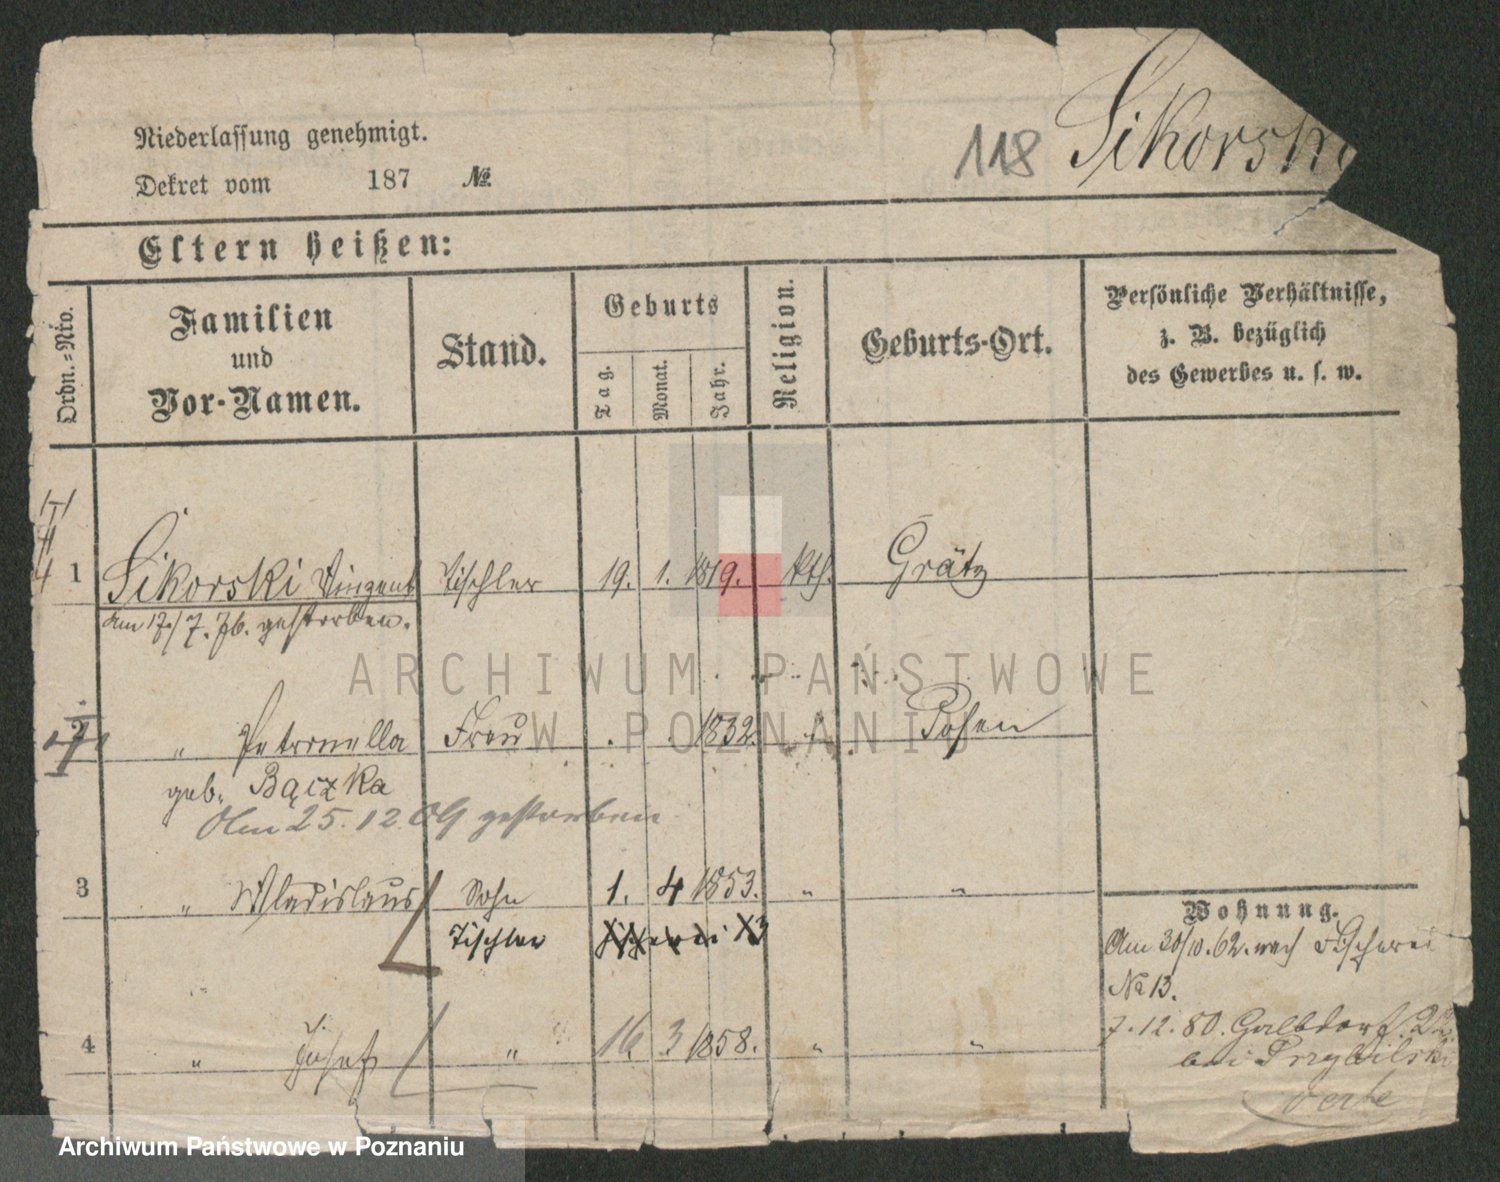 Niederlassung genehmigt.
Dekret vom 187 №
118 Sikorski
Eltern heißen:
Ordn.-Nro.
Familien
und
Vor-Namen.
Stand.
Geburts
Tag.
Monat.
Jahr.
Religion.
Geburts-Ort.
Persönliche Verhältnisse,
z. B. bezüglich
des Gewerbes u. s. w.
1 Sikorski Vinzent Tischler 19. 1. 1819. kth. Grätz
Am 17./7. 76. gestorben.
2 " Petronella Frau . . 1832. " Posen
geb. Bączka
Am 25.12.09 gestorben
3 " Wladislaus Sohn 1. 4 1853. " "
Tischler
4 " Josef " 16. 3 1858. " "
Wohnung.
Am 30/10. 62. nach Fischerei
No 13.
7.12.80. Halbdorf
bei Przybilski
verte
ARCHIWUM PAŃSTWOWE
W POZNANIU
Archiwum Państwowe w Poznaniu